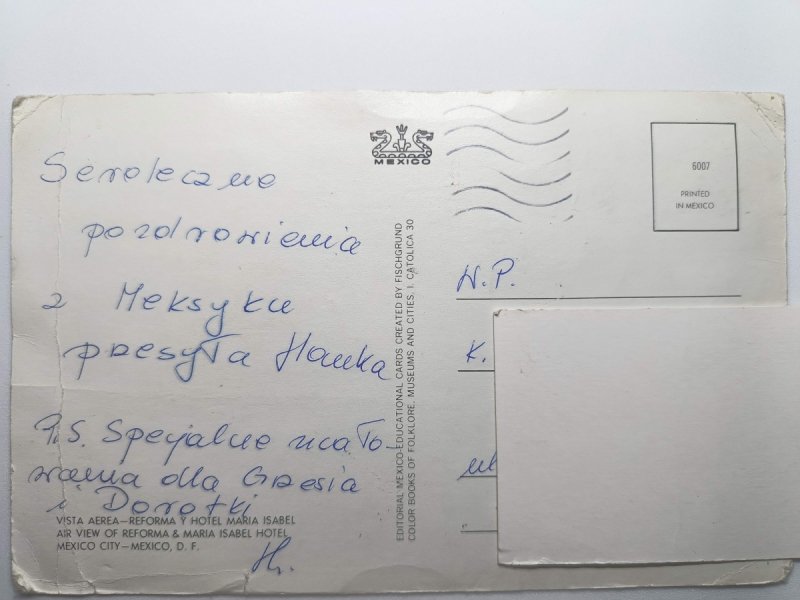 Serdeczne
pozdrowienia
z Meksyku
przesyła Hanka
P.S. Specjalne ucało-
wania dla Grzesia
i Dorotki
H.
VISTA AEREA—REFORMA Y HOTEL MARIA ISABEL
AIR VIEW OF REFORMA & MARIA ISABEL HOTEL
MEXICO CITY—MEXICO, D. F.
MEXICO
EDITORIAL MEXICO-EDUCATIONAL CARDS CREATED BY FISCHGRUND
COLOR BOOKS OF FOLKLORE, MUSEUMS AND CITIES. I. CATOLICA 30
6007
PRINTED
IN MEXICO
W.P.
K.
ul